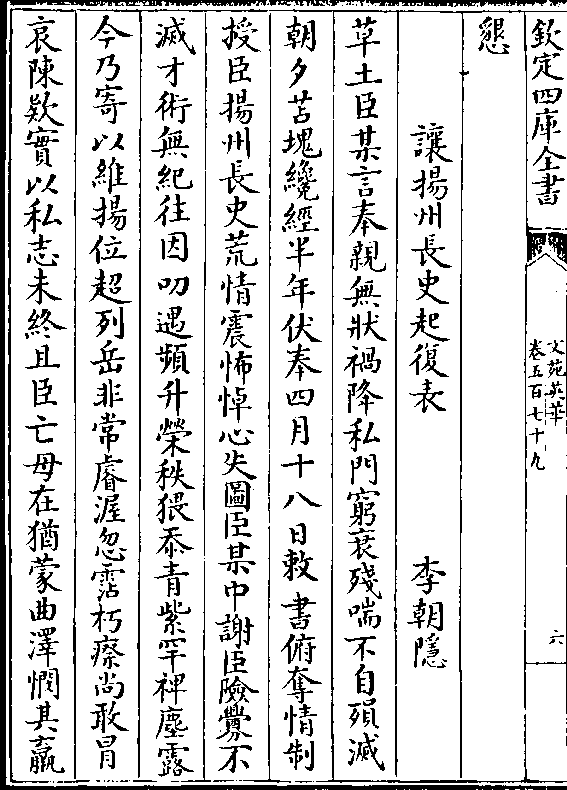 欽定四庫全書
文苑英華
卷五百七十九
六
懇
讓揚州長史起復表 李朝隱
草土臣某言奉親無狀禍降私門窮哀殘喘不自殞滅
朝夕苫塊纔經半年伏奉四月十八日敕書俯奪情制
授臣揚州長史荒情震怖悼心失圖臣某中謝臣險釁不
滅才術無紀往因叨遇頻升榮秩猥忝青紫罕裨塵露
今乃寄以維揚位超列岳非常睿渥忽霑朽瘵尚敢冒
哀陳欵實以私志未終且臣亡母在猶蒙曲澤憫其羸